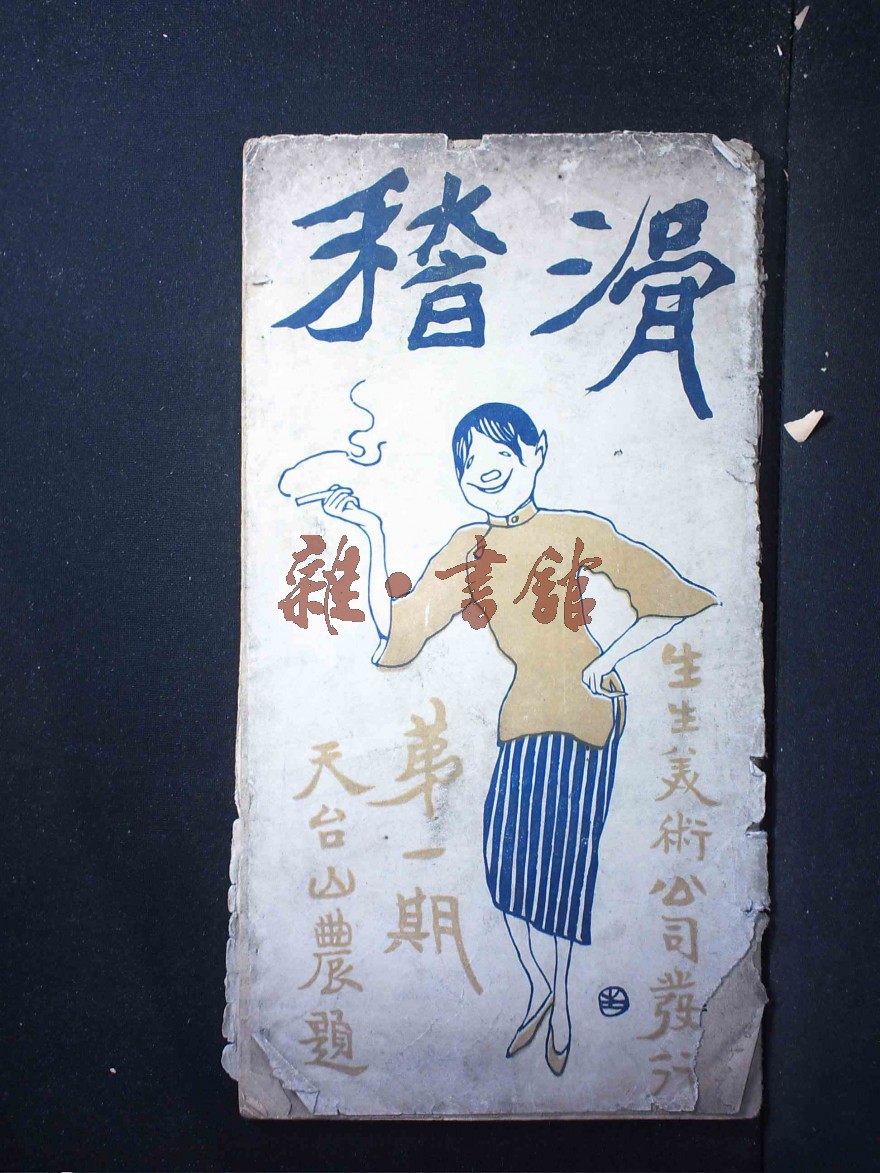 滑稽
生生美術公司發行
第一期
天台山農題
雜·書館